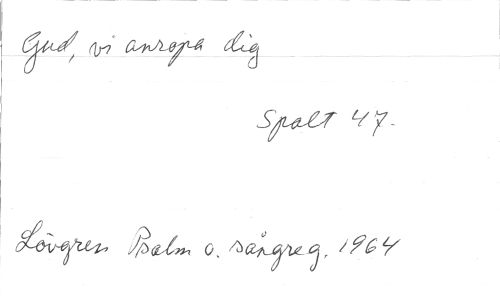 Gud, vi anropa dig
Spalt 47.
Lövgren Psalm o. sångreg. 1964